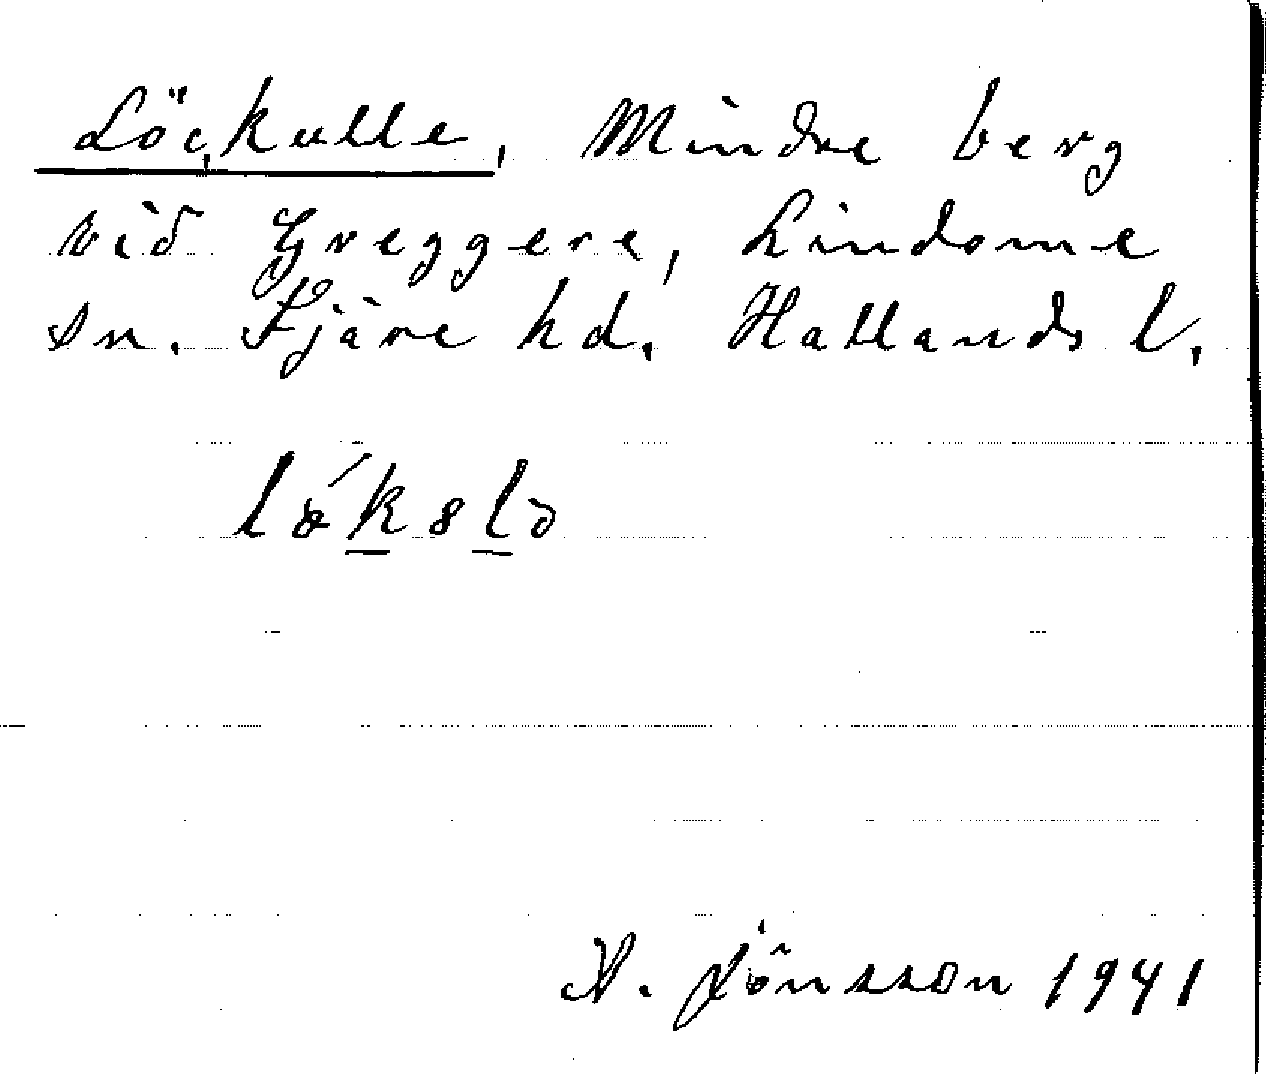 Löckulle, Mindre berg
vid Greggere, Lindome
sn. Fjäre hd. Hallands l.
A. Jönsson 1941